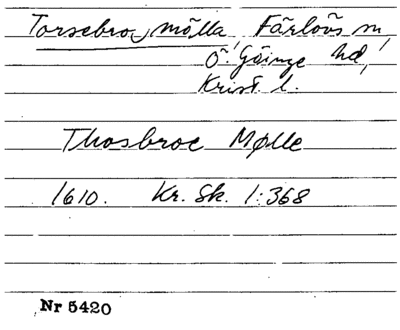 Torsebro, mölla, Färlövs sn,
Ö. Göinge hd,
Krist. l.
Thosbroe Mølle
1610. Kr. Sk. 1:368
Nr 5420